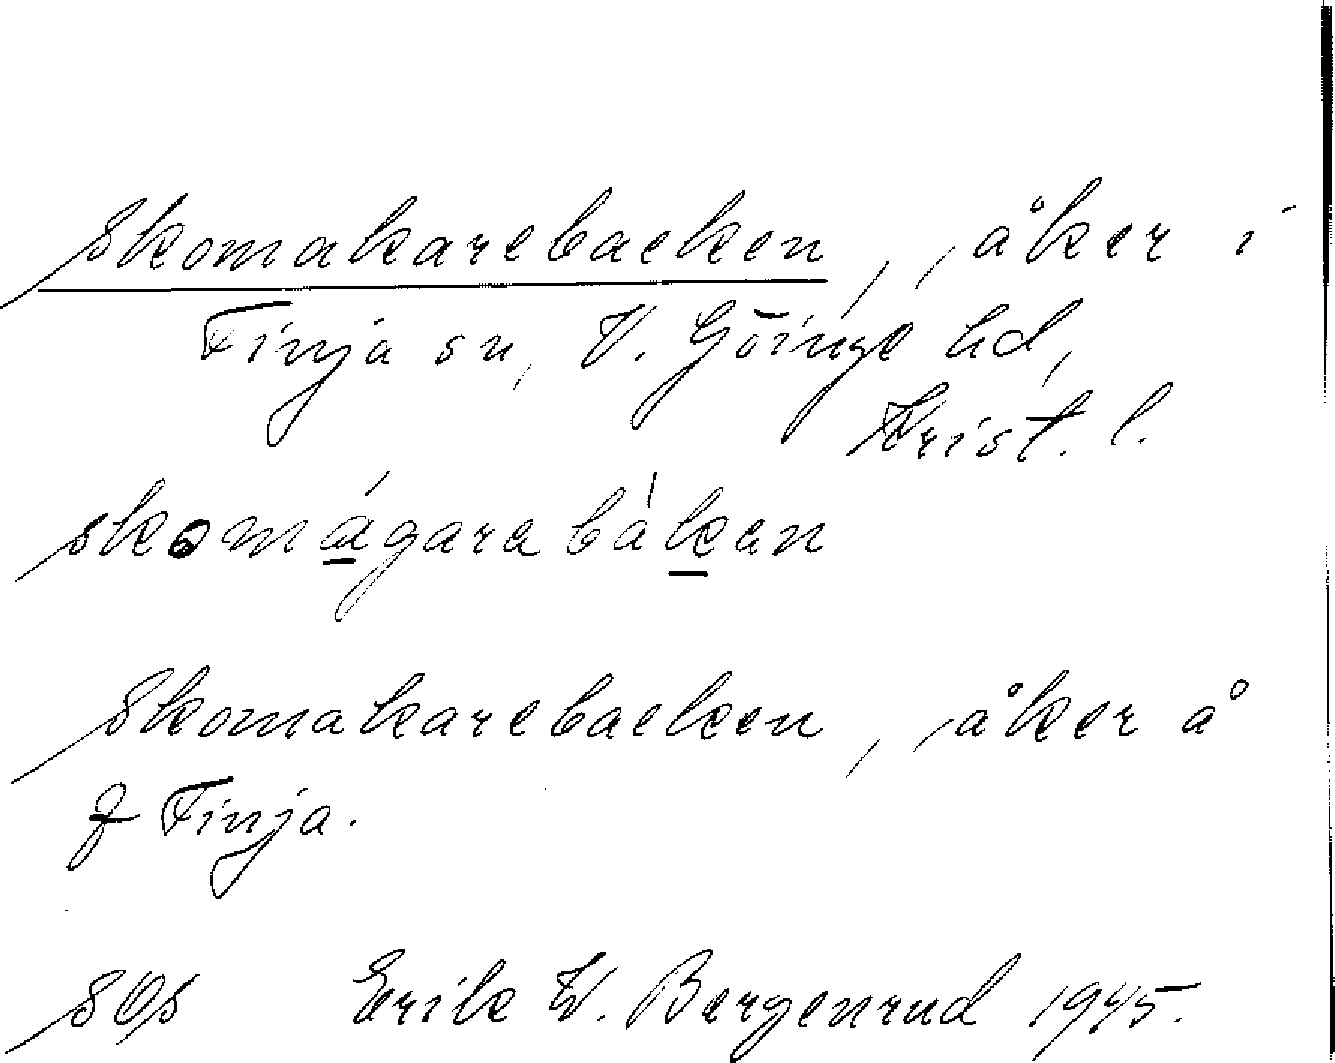 Skomakarebacken, åker i
Finja sn, V. Göinge hd,
Krist. l.
skomágarabáken
Skomakarebacken, åker å
f Finja.
SOs Erik W. Bergenrud 1945.